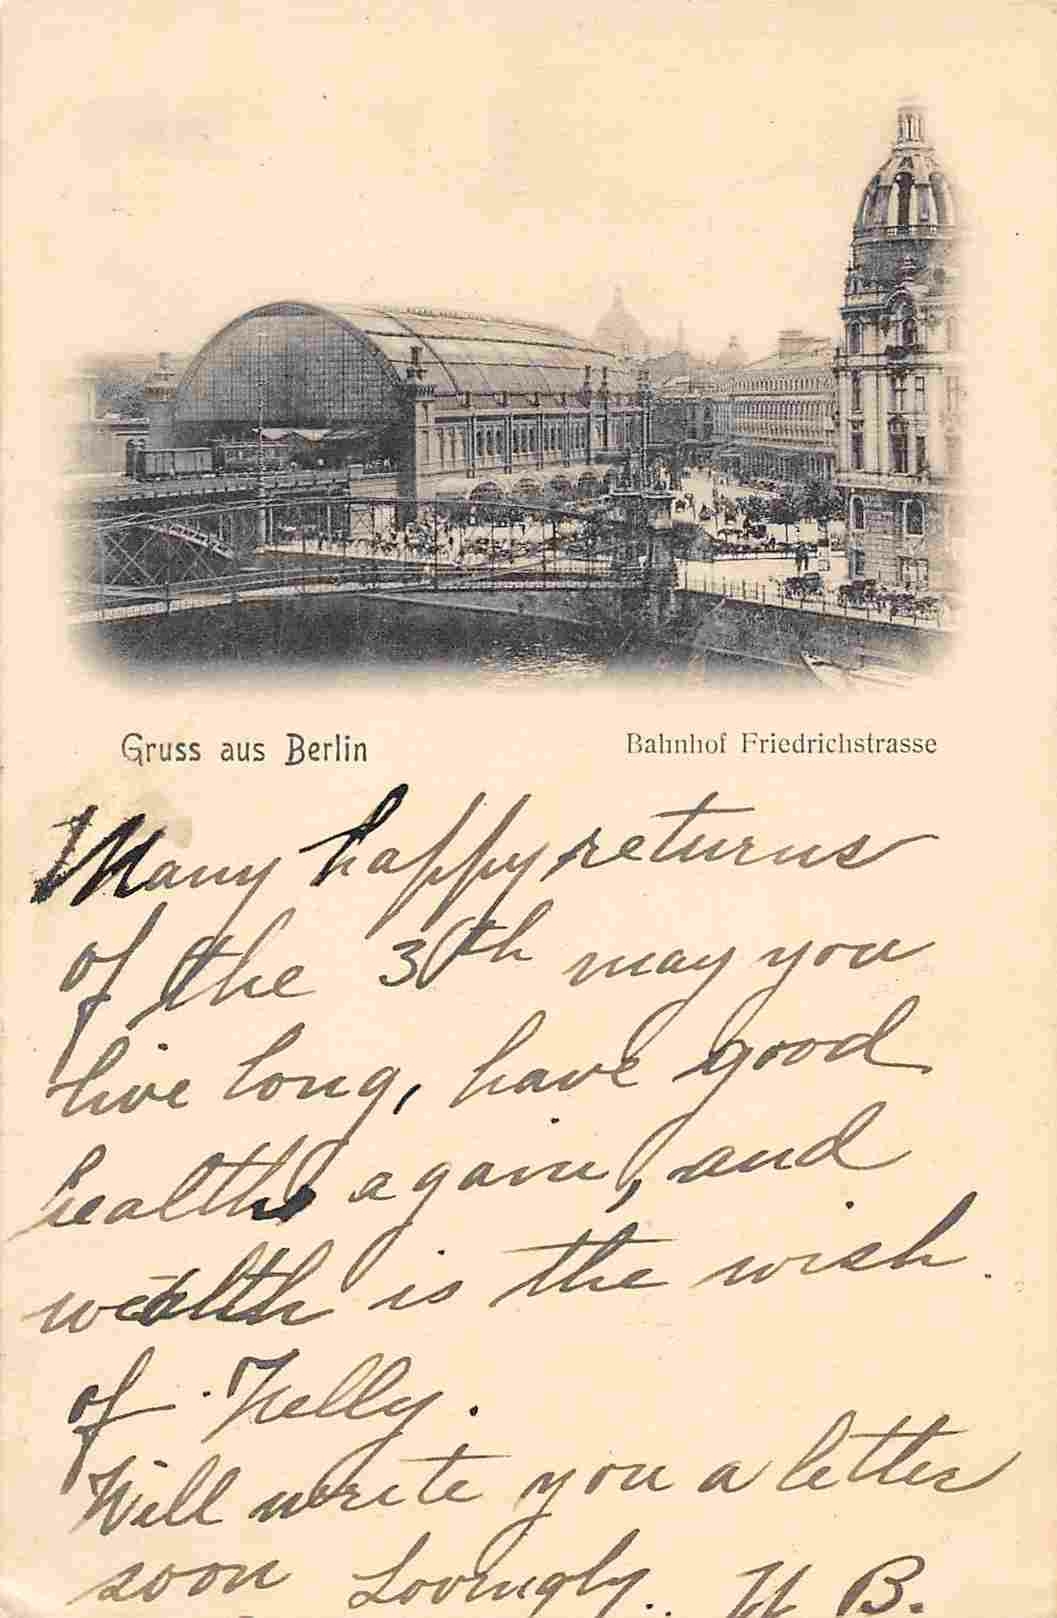 Gruss aus Berlin
Bahnhof Friedrichstrasse
Many happy returns
of the 3th may you
live long, have good
health again, and
wealth is the wish
of Nelly.
Will write you a letter
soon Lovingly. N B.